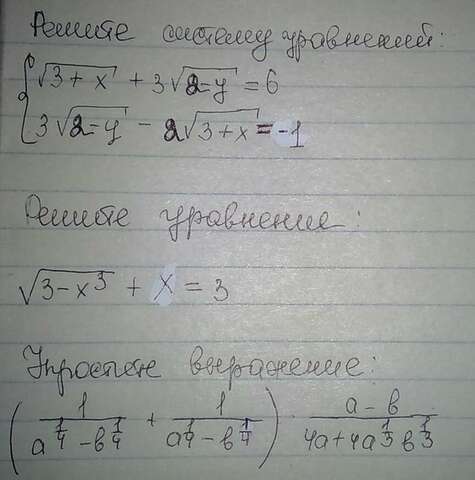 Решите систему уравнений:
√(3 + x) + 3√(2 - y) = 6
3√(2 - y) - 2√(3 + x) = -1
Решите уравнение:
√(3 - x³) + x = 3
Упростите выражение:
(1/(a^(1/4) - b^(1/4)) + 1/(a^(1/4) - b^(1/4))) · (a - b)/(4a + 4a^(1/3) b^(1/3))